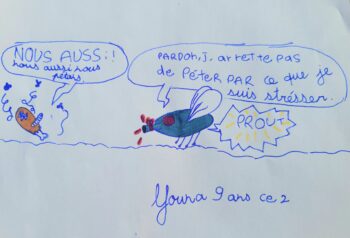 NOUS AUSSi!
nous aussi nous
pétons
PARDON, J, arrette pas
de Péter PAR ce que je
suis strésser.
PROUT
Youra 9 ans ce2